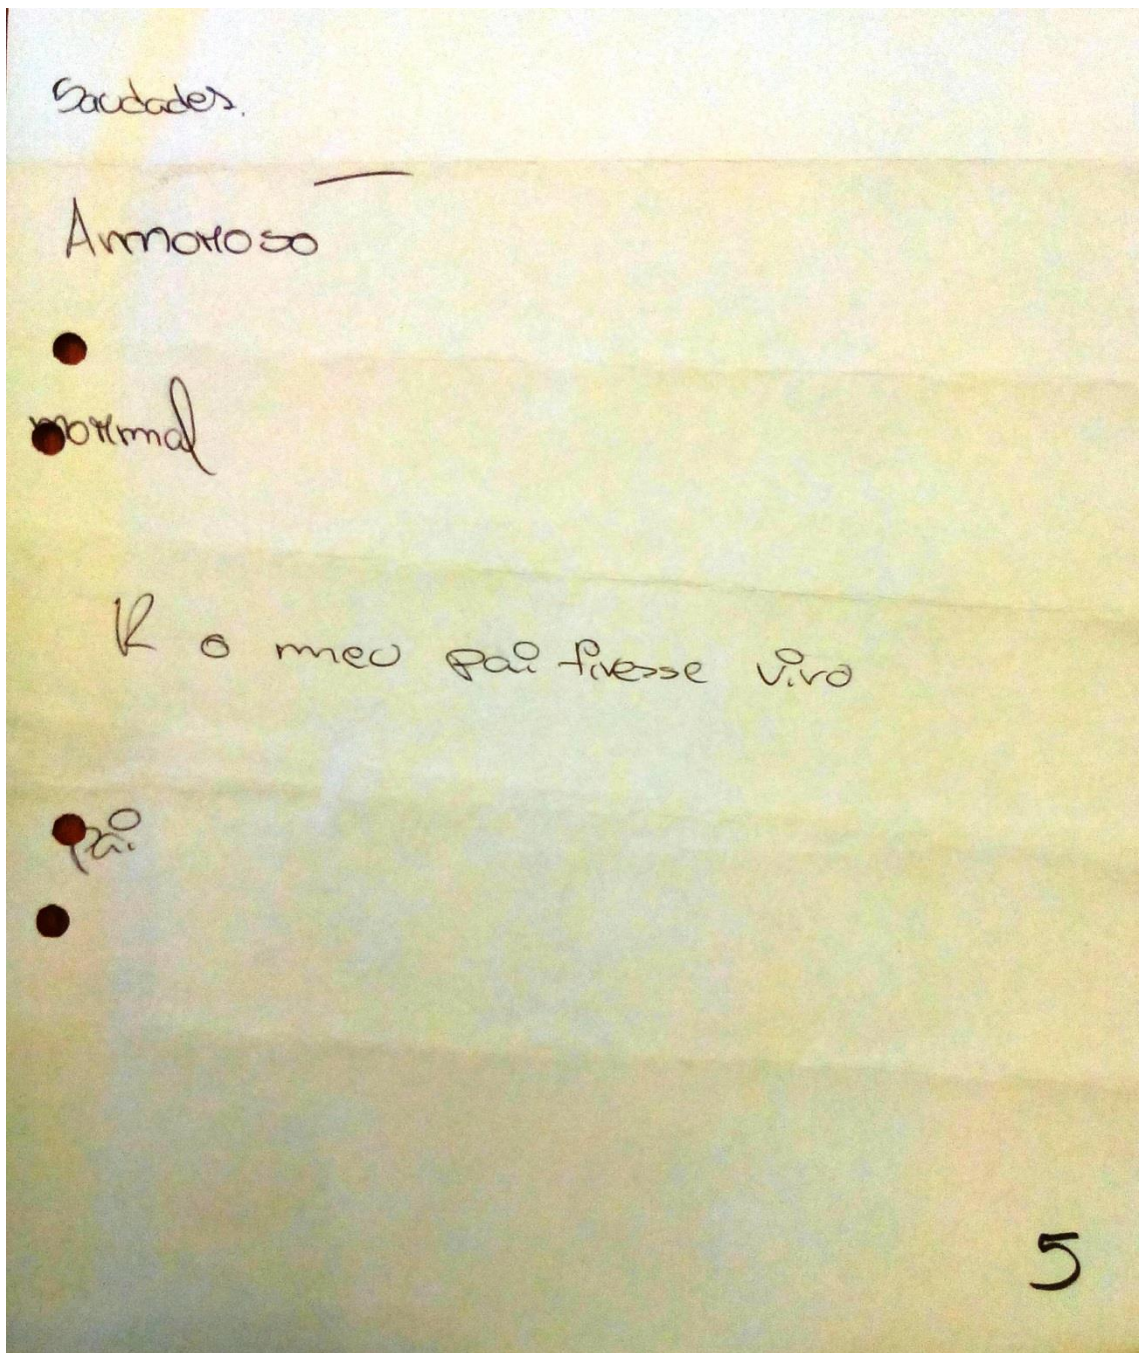 Saudades.
Amoroso
normal
R o meu pai tivesse vivo
pai
5